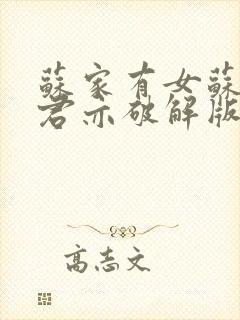 蘇家有女蘇
君亦破解版
高志文